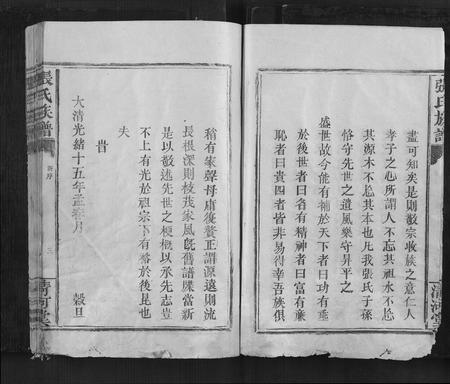 張氏族譜
盡可知矣是則敬宗收族之意仁人
孝子之心所謂人不忘其祖水不忘
其源木不忘其本也凡我張氏子孫
恪守先世之遺風樂守昇平之
盛世故今能有補於天下者曰功有垂
於後世者曰名有精神者曰富有廉
恥者曰貴四者皆非易得幸吾族俱
清河堂
張氏族譜
新序
三
清河堂
稍有家聲毋庸復贅正謂源遠則流
長根深則枝茂家風既舊譜牒當新
是以敬述先世之梗概以承先志豈
不上有光於祖宗下有裕於後昆也
夫
旹
大清光緒十五年孟春月 穀旦